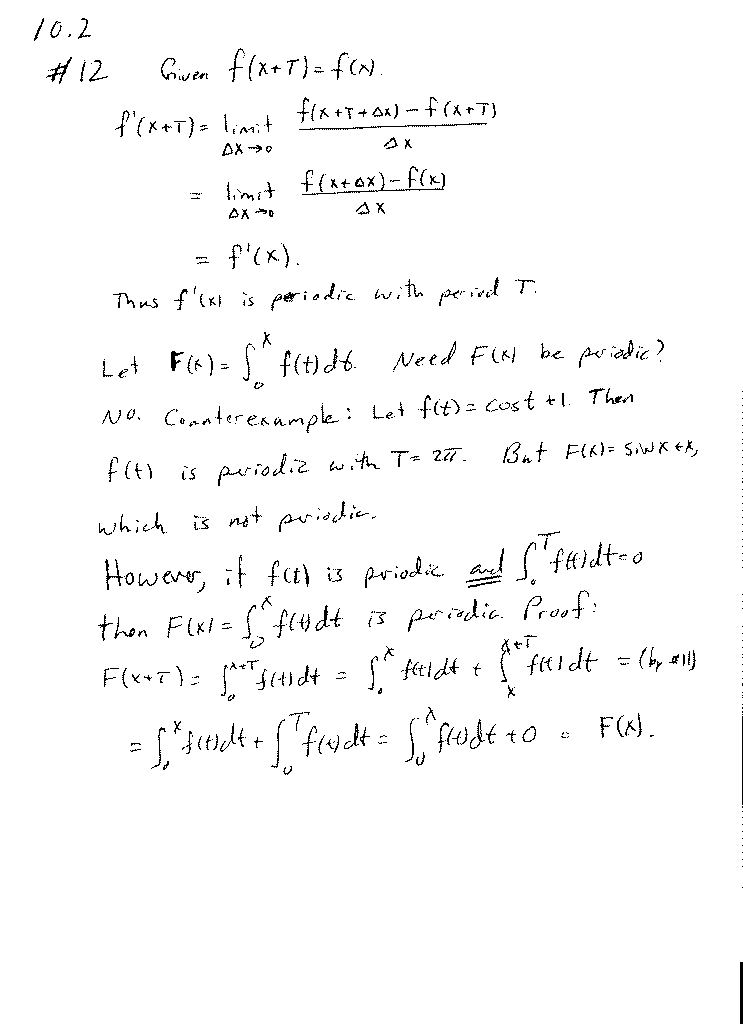 10.2
#12 Given f(x+T)=f(x).
f'(x+T)= limit Δx→0 f(x+T+Δx)-f(x+T) / Δx
= limit Δx→0 f(x+Δx)-f(x) / Δx
= f'(x).
Thus f'(x) is periodic with period T.
Let F(x)= ∫₀ˣ f(t)dt. Need F(x) be periodic?
No. Counterexample: Let f(t)=cost+1. Then
f(t) is periodic with T=2π. But F(x)=sinx+x,
which is not periodic.
However, if f(t) is periodic and ∫₀ᵀ f(t)dt=0
then F(x)= ∫₀ˣ f(t)dt is periodic. Proof:
F(x+T)= ∫₀ˣ⁺ᵀ f(t)dt = ∫₀ˣ f(t)dt + ∫ₓˣ⁺ᵀ f(t)dt = (by #11)
= ∫₀ˣ f(t)dt + ∫₀ᵀ f(t)dt = ∫₀ˣ f(t)dt + 0 = F(x).